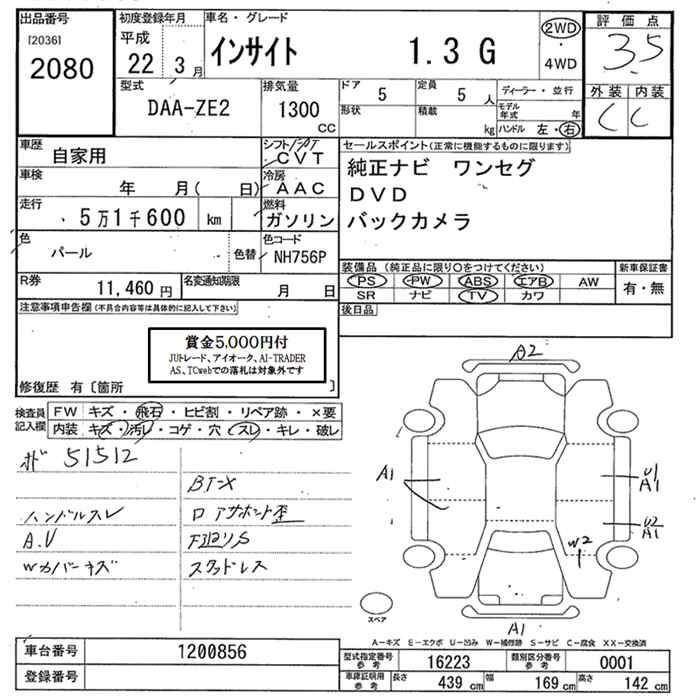 出品番号
[2036]
2080
初度登録年月
平成
22年 3月
車名・グレード
インサイト 1.3 G
2WD
・
4WD
評価点
3.5
外装 内装
C C
型式
DAA-ZE2
排気量
1300
cc
ドア 5
形状
定員 5 人
積載 kg
ディーラー・並行
モデル年式 年
ハンドル 左・右
車歴
自家用
シフト
CVT
車検
年 月( 日)
冷房
AAC
走行
5万1千600 km
燃料
ガソリン
色
パール
色替
色コード
NH756P
R券
11,460 円
名変通知期限
月 日
セールスポイント(正常に機能するものに限ります)
純正ナビ ワンセグ
DVD
バックカメラ
装備品(純正品に限り○をつけてください)
新車保証書
PS PW ABS エアB AW
有・無
SR ナビ TV カワ
後日品
注意事項申告欄(不具合内容等は具体的に記入して下さい)
賞金5,000円付
JUトレード、アイオーク、AI-TRADER
AS、TCwebでの落札は対象外です
修復歴 有〔箇所 〕
検査員記入欄
FW キズ・飛石・ヒビ割・リペア跡・×要
内装 キズ・汚レ・コゲ・穴・スレ・キレ・破レ
51512
BT-X
ハンドルスレ
ロアサポート歪
A.U
Wカバーキズ
スタッドレス
A2
A1
U1
A1
U2
A1
W2
A1
スペア
A-キズ E-エクボ U-凹み W-補修跡 S-サビ C-腐食 XX-交換済
車台番号 1200856
登録番号
型式指定番号参考 16223
類別区分番号参考 0001
車庫証明用参考 長さ 439 cm 幅 169 cm 高さ 142 cm